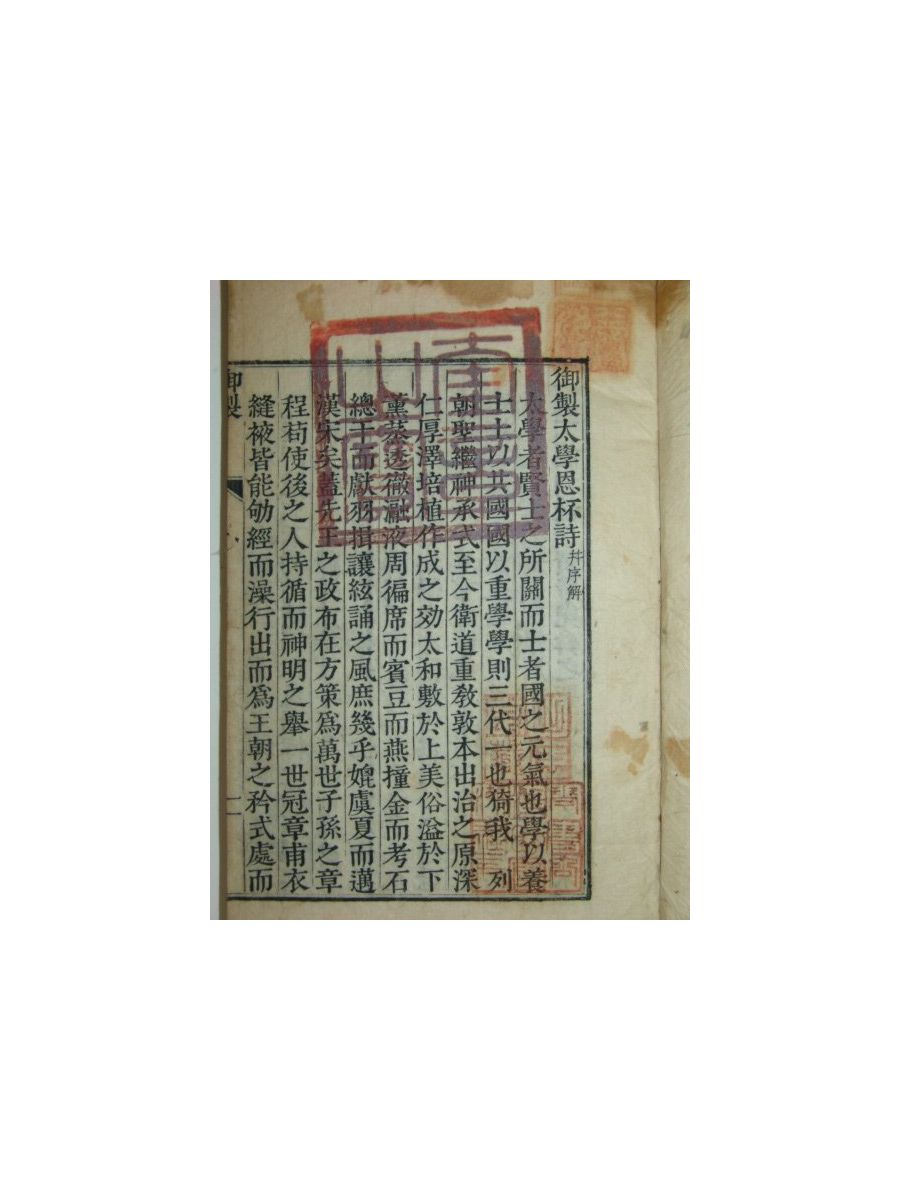 御製太學恩杯詩 幷序解
太學者賢士之所關而士者國之元氣也學以養
士士以共國國以重學學則三代一也猗我 列
朝聖繼神承式至今衛道重敎敦本出治之原深
仁厚澤培植作成之効太和敷於上美俗溢於下
薰蒸透徹瀜液周徧席而賓豆而燕撞金而考石
總干而獻羽揖讓絃誦之風庶幾乎媲虞夏而邁
漢宋矣蓋先王之政布在方策爲萬世子孫之章
程苟使後之人持循而神明之擧一世冠章甫衣
縫掖皆能劬經而澡行出而爲王朝之矜式處而
御製 一